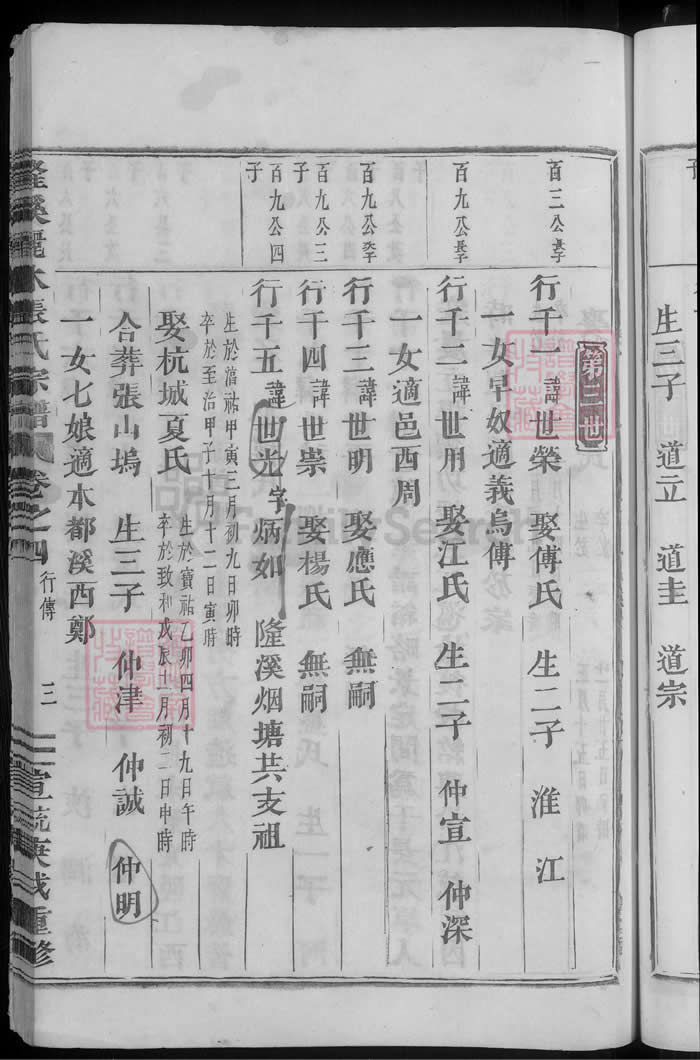 生三子 道立 道圭 道宗
第三世
百三公長子
行千一諱世榮 娶傅氏 生二子 淮 江
一女早奴適義烏傅
百九公長子
行千二諱世用 娶江氏 生二子 仲宣 仲深
一女適邑西周
百九公次子
行千三諱世明 娶應氏 無嗣
百九公三子
行千四諱世崇 娶楊氏 無嗣
百九公四子
行千五諱世光字炳如 隆溪烟塘共支祖
生於淳祐甲寅三月初九日卯時
卒於至治甲子十月十二日寅時
娶杭城夏氏
生於寶祐乙卯四月十九日午時
卒於致和戊辰十一月初二日申時
合葬張山塢 生三子 仲津 仲誠 仲明
一女七娘適本都溪西鄭
張氏宗譜 卷之四 行傳 三 宣統庚戌重修
FamilySearch